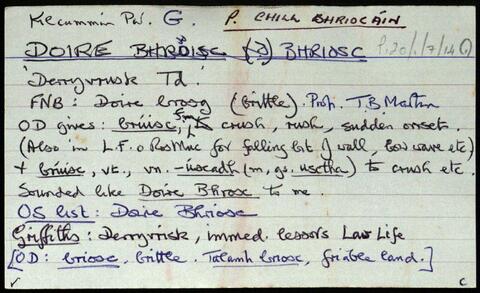 Kilcummin Par. G. P. CHILL BHRIOCÁIN
DOIRE BHRÚISC (nó) BHRIOSC
'Derryvrisk Td.'
FNB: Doire briosg (brittle). Prop. T.B. Martin
OD gives: brúisc, crush, rush, sudden onset.
(Also in L.F. Ó RosMac for falling bit of wall, bow wave etc)
+ brúisc, vt., vn. -úscadh (m, gs. usctha) to crush etc.
Sounded like Doire Bhrosc to me.
OS list: Doire Bhriosc
Griffiths: Derryvrisk, immed. lessors Law Life
[OD: briosc, brittle. Talamh briosc, friable land.]
c